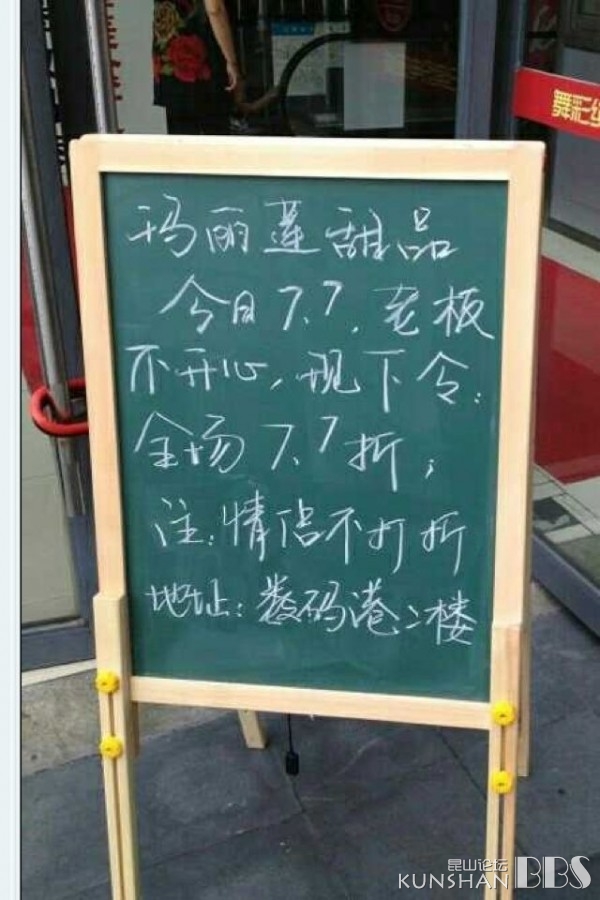 舞彩
玛丽莲甜品
今日7.7.老板
不开心,现下令:
全场7.7折;
注:情侣不打折
地址:数码港二楼
昆山论坛
KUNSHAN BBS